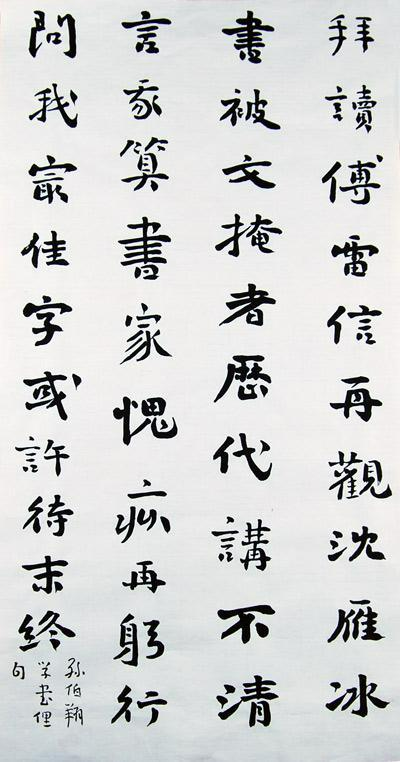 拜讀傅雷信再觀沈雁冰
書被文掩者歷代講不清
言我算書家愧疚再躬行
問我㝡佳字或許待末終
孫伯翔
学書俚
句